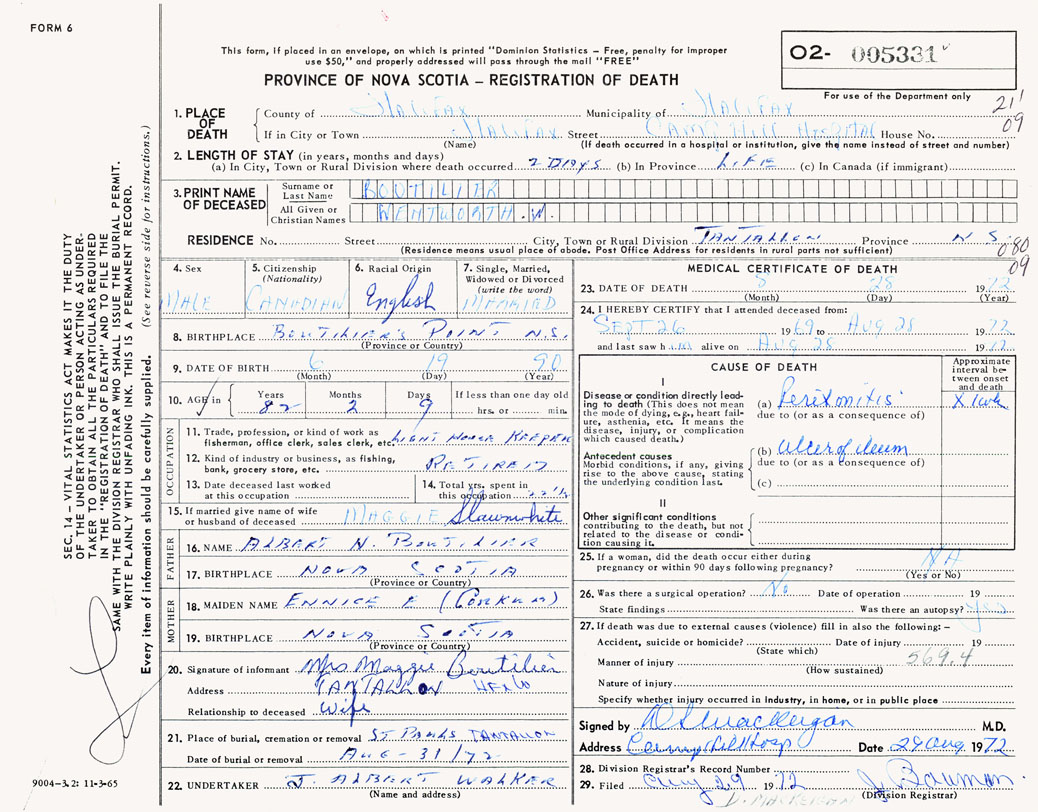 FORM 6
This form, if placed in an envelope, on which is printed "Dominion Statistics – Free, penalty for improper
use $50," and properly addressed will pass through the mail "FREE"
O2- 005331
PROVINCE OF NOVA SCOTIA – REGISTRATION OF DEATH
For use of the Department only
211
09
1. PLACE OF DEATH County of HALIFAX Municipality of HALIFAX
If in City or Town HALIFAX Street CAMP HILL HOSPITAL House No.
(Name) (If death occurred in a hospital or institution, give the name instead of street and number)
2. LENGTH OF STAY (in years, months and days)
(a) In City, Town or Rural Division where death occurred 2 DAYS (b) In Province LIFE (c) In Canada (if immigrant)
3. PRINT NAME OF DECEASED Surname or Last Name BOUTILIER
All Given or Christian Names WENTWORTH .W.
RESIDENCE No. Street City, Town or Rural Division TANTALLEN Province N S.
(Residence means usual place of abode. Post Office Address for residents in rural parts not sufficient)
080
09
4. Sex MALE
5. Citizenship (Nationality) CANADIAN
6. Racial Origin English
7. Single, Married, Widowed or Divorced (write the word) MARRIED
8. BIRTHPLACE BOUTILIER'S POINT N.S.
(Province or Country)
9. DATE OF BIRTH 6 19 90
(Month) (Day) (Year)
10. AGE in Years 82 Months 2 Days 9 If less than one day old
hrs. or min.
OCCUPATION
11. Trade, profession, or kind of work as
fisherman, office clerk, sales clerk, etc. LIGHT HOUSE KEEPER
12. Kind of industry or business, as fishing,
bank, grocery store, etc. RETIRED
13. Date deceased last worked
at this occupation
14. Total yrs. spent in
this occupation 22½
15. If married give name of wife
or husband of deceased MAGGIE Slawnwhite
FATHER
16. NAME ALBERT N. BOUTILIER
17. BIRTHPLACE NOVA SCOTIA
(Province or Country)
MOTHER
18. MAIDEN NAME ENNICE E (CORKUM)
19. BIRTHPLACE NOVA SCOTIA
(Province or Country)
20. Signature of informant Mrs Maggie Boutilier
Address TANTALLON
Relationship to deceased Wife
21. Place of burial, cremation or removal ST. PAULS TANTALLON
Date of burial or removal AUG - 31/72
22. UNDERTAKER J. ALBERT WALKER
(Name and address)
MEDICAL CERTIFICATE OF DEATH
23. DATE OF DEATH 8 28 1972
(Month) (Day) (Year)
24. I HEREBY CERTIFY that I attended deceased from:
SEPT 26 1969 to AUG 28 1972
and last saw him alive on AUG 28 1972
CAUSE OF DEATH
Approximate interval between onset and death
I
Disease or condition directly leading to death (This does not mean the mode of dying, e.g., heart failure, asthenia, etc. It means the disease, injury, or complication which caused death.)
(a) Peritonitis X 1 wk
due to (or as a consequence of)
Antecedent causes
Morbid conditions, if any, giving rise to the above cause, stating the underlying condition last.
(b) Ulcer of ileum
due to (or as a consequence of)
(c)
II
Other significant conditions
contributing to the death, but not related to the disease or condition causing it.
25. If a woman, did the death occur either during
pregnancy or within 90 days following pregnancy? NA
(Yes or No)
26. Was there a surgical operation? No Date of operation 19
State findings Was there an autopsy? Yes
27. If death was due to external causes (violence) fill in also the following: –
Accident, suicide or homicide? Date of injury 19
(State which)
Manner of injury 569.4
(How sustained)
Nature of injury
Specify whether injury occurred in industry, in home, or in public place
Signed by D S MacKeigan M.D.
Address Camp Hill Hosp Date 29 Aug 1972
28. Division Registrar's Record Number
29. Filed Aug 29 1972 J. Bauman
(Division Registrar)
D. MACKEIGAN
SEC. 14 – VITAL STATISTICS ACT MAKES IT THE DUTY
OF THE UNDERTAKER OR PERSON ACTING AS UNDER-
TAKER TO OBTAIN ALL THE PARTICULARS REQUIRED
IN THE "REGISTRATION OF DEATH" AND TO FILE THE
SAME WITH THE DIVISION REGISTRAR WHO SHALL ISSUE THE BURIAL PERMIT.
WRITE PLAINLY WITH UNFADING INK. THIS IS A PERMANENT RECORD.
Every item of information should be carefully supplied. (See reverse side for instructions.)
9004-3.2: 11-3-65